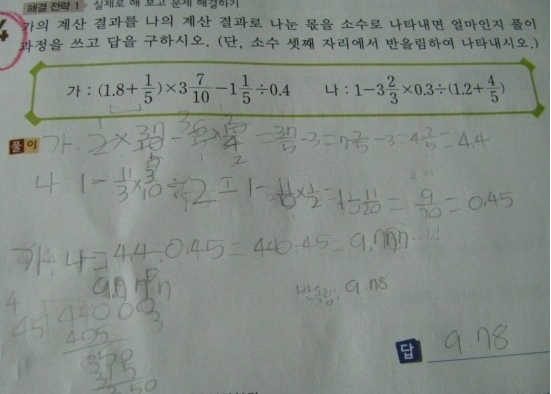 해결 전략 1 실제로 해 보고 문제 해결하기
4 가의 계산 결과를 나의 계산 결과로 나눈 몫을 소수로 나타내면 얼마인지 풀이
과정을 쓰고 답을 구하시오. (단, 소수 셋째 자리에서 반올림하여 나타내시오.)
가 : (1.8+1/5)×3 7/10−1 1/5÷0.4 나 : 1−3 2/3×0.3÷(1.2+4/5)
풀이 가. 2×37/10
나. 1−11/3×3/10÷2=1−11/10×1/2=1−11/20=9/20=0.45
가÷나=4.4÷0.45=440÷45=9.777
반올림: 9.78
45 44000
405
350
315
350
답 9.78